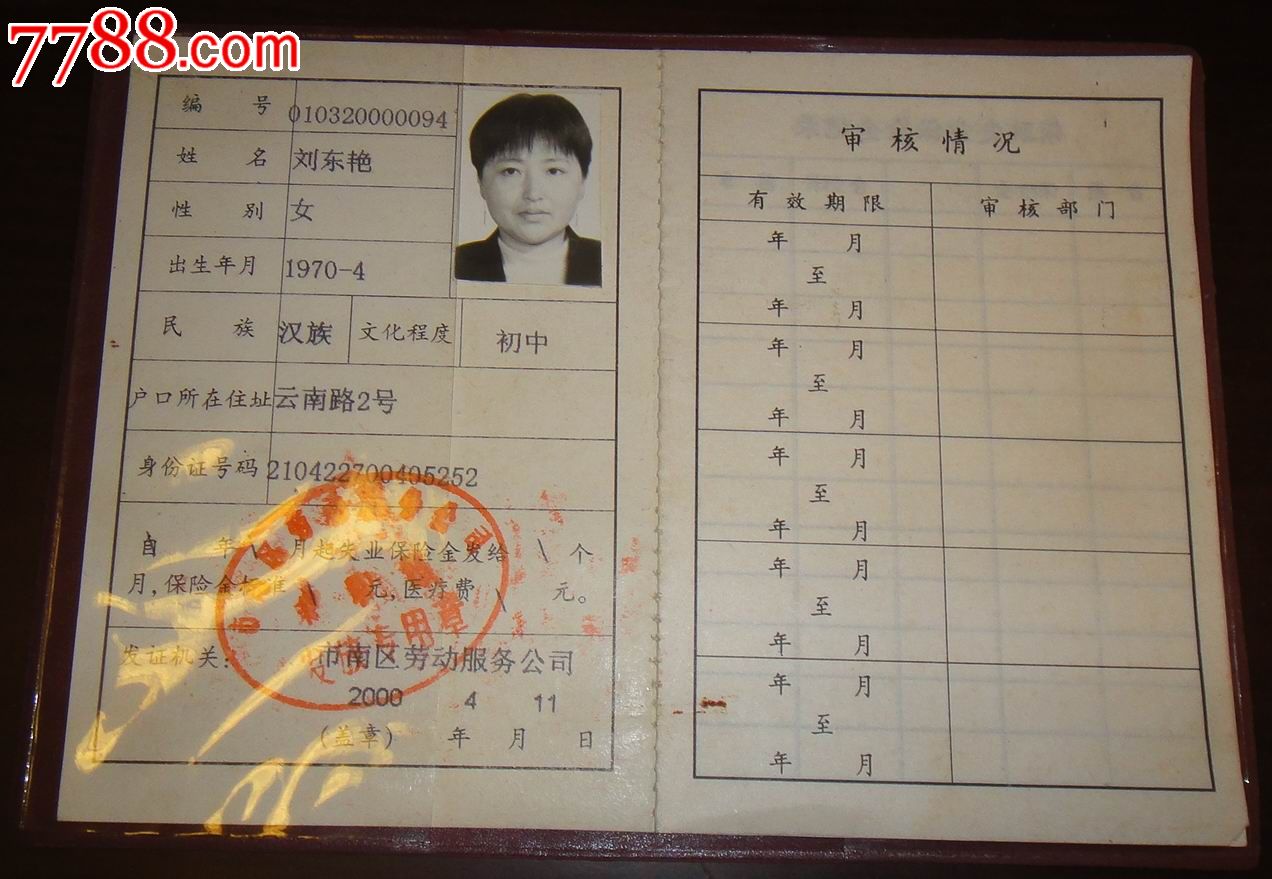 7788.com
编 号 010320000094
姓 名 刘东艳
性 别 女
出生年月 1970-4
民 族 汉族 文化程度 初中
户口所在住址 云南路2号
身份证号码 210422700405252
自 年 \ 月起失业保险金发给 \ 个
月,保险金标准 \ 元,医疗费 \ 元。
发证机关: 市南区劳动服务公司
2000 4 11
(盖章) 年 月 日
专用章
审核情况
有效期限 审核部门
年 月
至
年 月
年 月
至
年 月
年 月
至
年 月
年 月
至
年 月
年 月
至
年 月